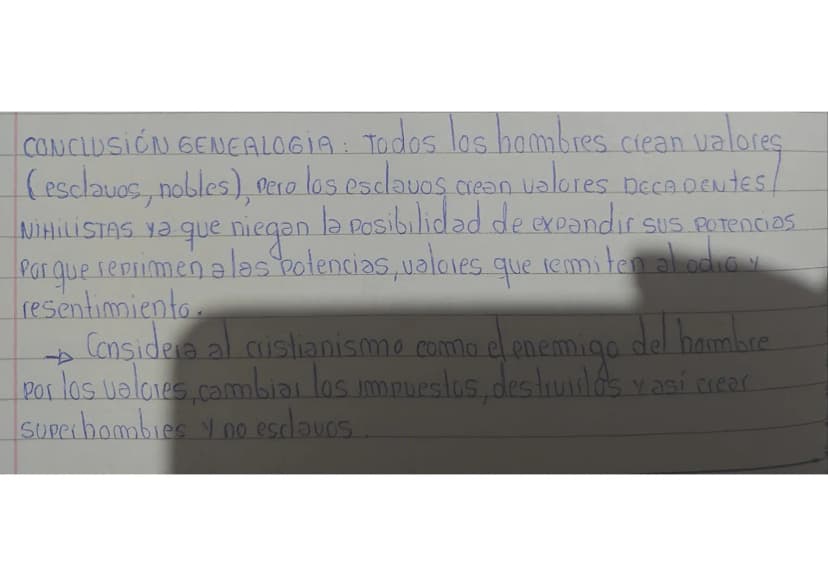 CONCLUSIÓN GENEALOGIA: Todos los hombres crean valores
(esclavos, nobles), pero los esclavos crean valores DECADENTES/
NIHILISTAS ya que niegan la posibilidad de expandir sus potencias
Porque reprimen a las potencias, valores que remiten al odio y
resentimiento.
→ Considera al cristianismo como el enemigo del hombre
por los valores, cambiar los impuestos, destruirlos y así crear
superhombres y no esclavos.